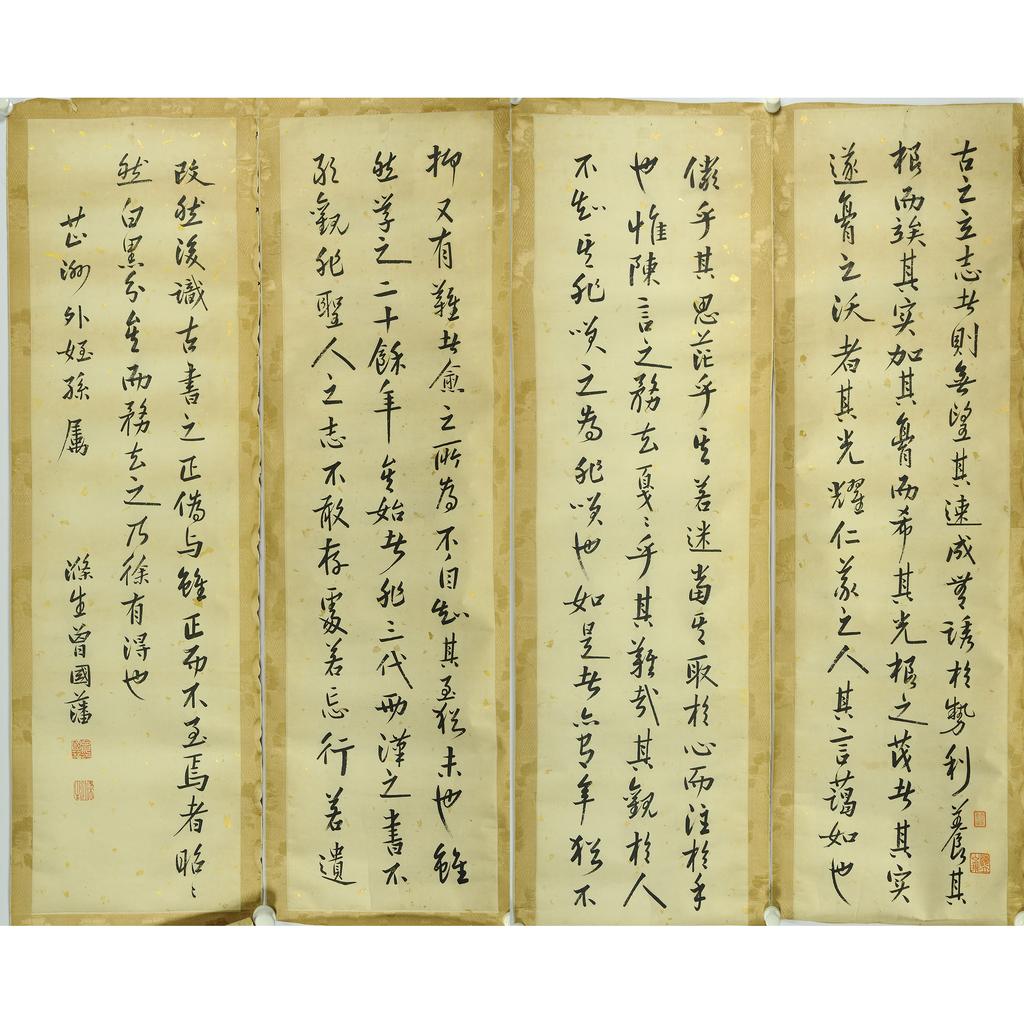 古之立志者則無望其速成無誘於勢利養其
根而竢其實加其膏而希其光根之茂者其實
遂膏之沃者其光耀仁義之人其言藹如也
儼乎其思茫乎其若迷當其取於心而注於手
也惟陳言之務去戛〻乎其難哉其觀於人
不知其非咲之為非咲也如是者亦有年猶不
抑又有難者愈之所為不自知其至猶未也雖
然學之二十餘年矣始者非三代兩漢之書不
敢觀非聖人之志不敢存處若忘行若遺
改然後識古書之正偽與雖正而不至焉者昭〻
然白黑分矣而務去之乃徐有得也
芷洲外姪孫屬
滌生曾國藩